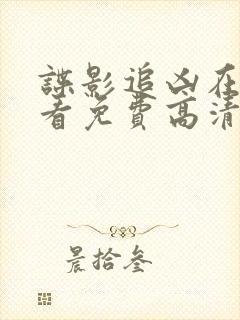 諜影追凶在
看免費高清
晨拾叁